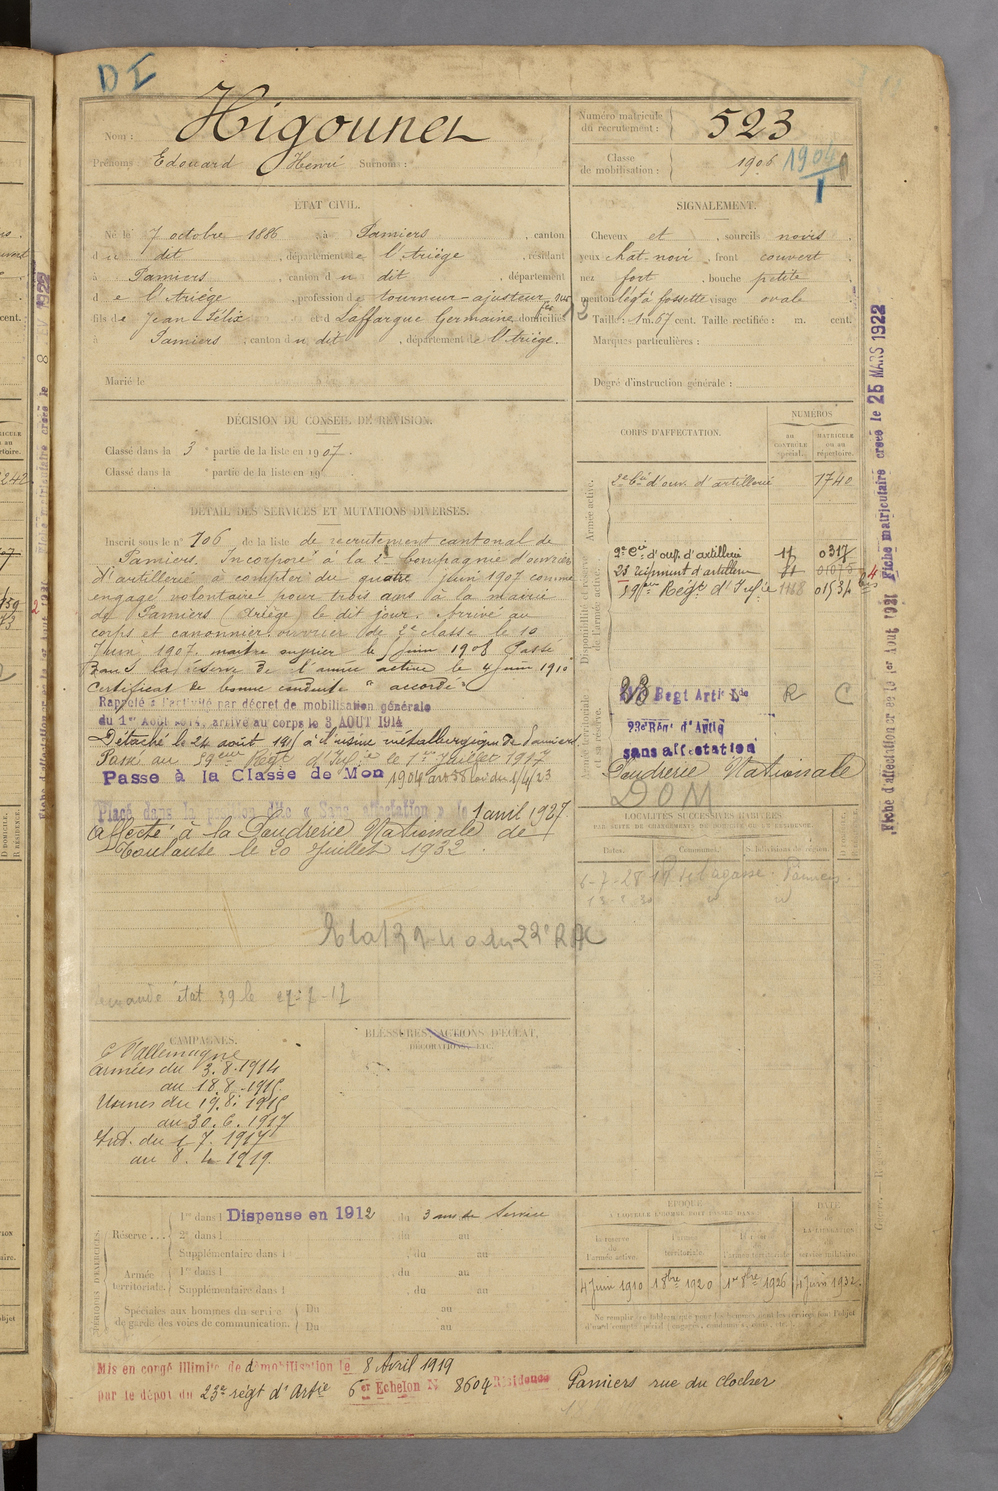 D I
Nom : Higounet
Prénoms : Edouard Henri Surnoms :
Numéro matricule du recrutement : 523
Classe de mobilisation : 1906 1904
I
ÉTAT CIVIL.
Né le 7 octobre 1886, à Pamiers, canton
du dit, département de l'Ariège, résidant
à Pamiers, canton du dit, département
de l'Ariège, profession de tourneur-ajusteur
fils de Jean Félix et de Laffargue Germaine domiciliés
à Pamiers, canton du dit, département de l'Ariège.
Marié le
SIGNALEMENT.
Cheveux et, sourcils noirs
yeux chat. noir, front couvert
nez fort, bouche petite
menton lég. à fossette visage ovale
Taille : 1 m. 67 cent. Taille rectifiée : m. cent.
Marques particulières :
Degré d'instruction générale :
DÉCISION DU CONSEIL DE RÉVISION.
Classé dans la 3e partie de la liste en 1907.
Classé dans la e partie de la liste en 19
DÉTAIL DES SERVICES ET MUTATIONS DIVERSES.
Inscrit sous le n° 106 de la liste de recrutement cantonal de
Pamiers. Incorporé à la 2e Compagnie d'ouvriers
d'artillerie à compter du quatre juin 1907 comme
engagé volontaire pour trois ans à la mairie
de Pamiers (Ariège) le dit jour. Arrivé au
corps et canonnier ouvrier de 2e classe le 10
Juin 1907. maitre ouvrier le juin 1908 Passé
Dans la réserve de l'armée active le 4 juin 1910
Certificat de bonne conduite "accordé"
Rappelé à l'activité par décret de mobilisation générale
du 1er Août 1914, arrivé au corps le 3 AOUT 1914
Détaché le 24 août 1915 à l'usine métallurgique de Pamiers
Passé au 59eme Regt d'Infie le 1er Juillet 1917
Passe à la Classe de Mon 1904 art 58 loi du 1/4/23
Placé dans la position dite « Sans affectation » le 1 avril 1927
Affecté à la Poudrerie Nationale de
Toulouse le 20 Juillet 1932.
demande état 39 le
CORPS D'AFFECTATION.
NUMÉROS
AU CONTRÔLE spécial.
MATRICULE OU AU répertoire.
Armée active.
2e Cie d'ouv. d'artillerie 1740
Disponibilité et réserve de l'armée active.
2e Cie d'ouv. d'artillerie 17 0317
23 régiment d'artillerie
59eme Regt d'Infie 1168 01534
Armée territoriale et sa réserve.
23 Regt Artie R C
23e Rent d'Artie
sans affectation
Poudrerie Nationale
DOM
LOCALITÉS SUCCESSIVES HABITÉES
PAR SUITE DE CHANGEMENTS DE DOMICILE OU DE RÉSIDENCE.
Dates. Communes. Subdivisions de région.
6-7-28 Pamiers
CAMPAGNES.
C. l'allemagne
armées du 3.8.1914
au 18.8.1915
Usines du 19.8.1915
au 30.6.1917
Int. du 1.7.1917
au 8.4.1919.
BLESSURES, ACTIONS D'ÉCLAT,
DÉCORATIONS, ETC.
PÉRIODES D'EXERCICES.
Réserve...
1re dans l Dispense en 1912 du 3 ans de Service
2e dans l , du au
Supplémentaire dans l , du au
Armée territoriale.
1re dans l , du au
Supplémentaire dans l , du au
Spéciales aux hommes du service de garde des voies de communication.
Du au
Du au
ÉPOQUE
À LAQUELLE L'HOMME DOIT PASSER DANS
la réserve de l'armée active. l'armée territoriale. la réserve de l'armée territoriale.
DATE de LA LIBÉRATION du service militaire.
4 juin 1910 1 8bre 1920 1er 8bre 1926 4 juin 1932
Mis en congé illimité de démobilisation le 8 Avril 1919
par le dépôt du 23e régt d'Artie 6er Echelon N 8604 Résidence Pamiers rue du clocher
Fiche d'affectation créée le 1er Août 1931 Fiche matriculaire créée le 25 MARS 1922